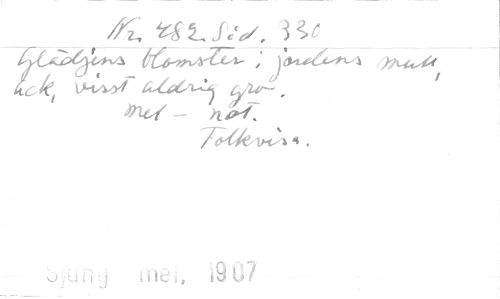 Nr. 482. Sid. 330
Glädjens blomster i jordens mull,
ack, visst aldrig gro.
Mel - not.
Folkvisa.
Sjung mel, 1907